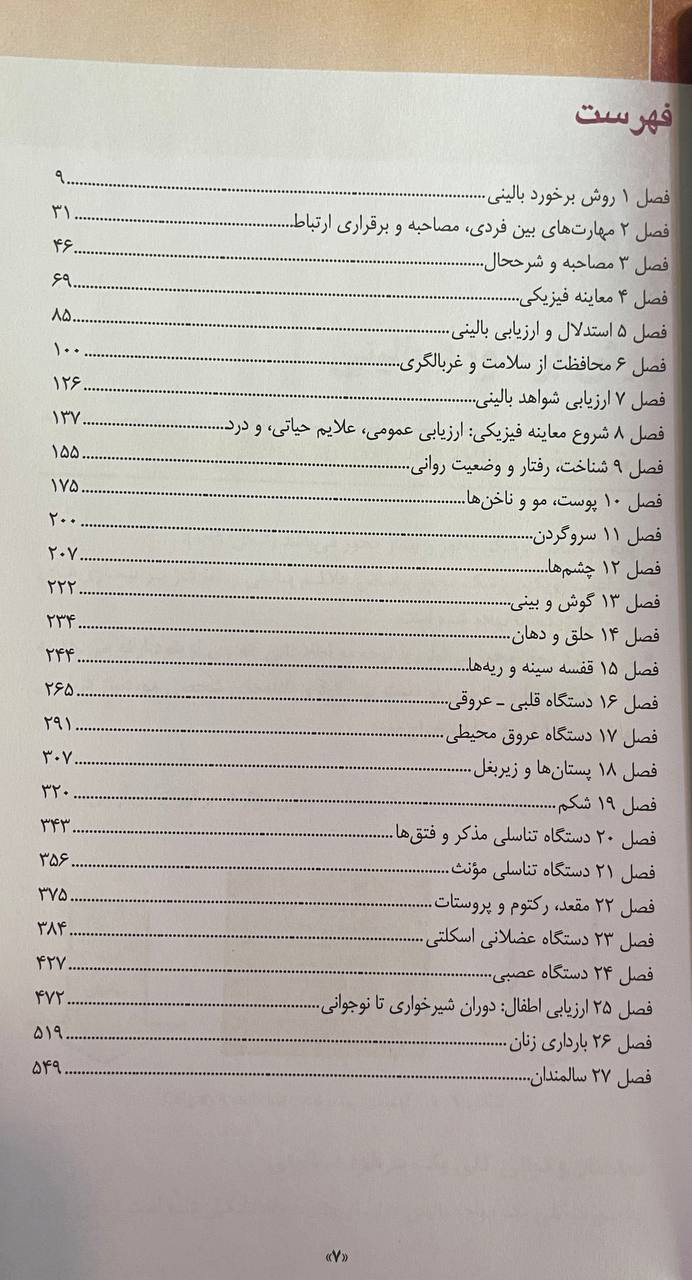 فهرست
فصل ۱ روش برخورد بالینی..........۹
فصل ۲ مهارت‌های بین فردی، مصاحبه و برقراری ارتباط..........۳۱
فصل ۳ مصاحبه و شرححال..........۴۶
فصل ۴ معاینه فیزیکی..........۶۹
فصل ۵ استدلال و ارزیابی بالینی..........۸۵
فصل ۶ محافظت از سلامت و غربالگری..........۱۰۰
فصل ۷ ارزیابی شواهد بالینی..........۱۲۶
فصل ۸ شروع معاینه فیزیکی: ارزیابی عمومی، علایم حیاتی، و درد..........۱۳۷
فصل ۹ شناخت، رفتار و وضعیت روانی..........۱۵۵
فصل ۱۰ پوست، مو و ناخن‌ها..........۱۷۵
فصل ۱۱ سروگردن..........۲۰۰
فصل ۱۲ چشم‌ها..........۲۰۷
فصل ۱۳ گوش و بینی..........۲۲۲
فصل ۱۴ حلق و دهان..........۲۳۴
فصل ۱۵ قفسه سینه و ریه‌ها..........۲۴۴
فصل ۱۶ دستگاه قلبی ـ عروقی..........۲۶۵
فصل ۱۷ دستگاه عروق محیطی..........۲۹۱
فصل ۱۸ پستان‌ها و زیربغل..........۳۰۷
فصل ۱۹ شکم..........۳۲۰
فصل ۲۰ دستگاه تناسلی مذکر و فتق‌ها..........۳۴۳
فصل ۲۱ دستگاه تناسلی مؤنث..........۳۵۶
فصل ۲۲ مقعد، رکتوم و پروستات..........۳۷۵
فصل ۲۳ دستگاه عضلانی اسکلتی..........۳۸۴
فصل ۲۴ دستگاه عصبی..........۴۲۷
فصل ۲۵ ارزیابی اطفال: دوران شیرخواری تا نوجوانی..........۴۷۲
فصل ۲۶ بارداری زنان..........۵۱۹
فصل ۲۷ سالمندان..........۵۴۹
«۷»